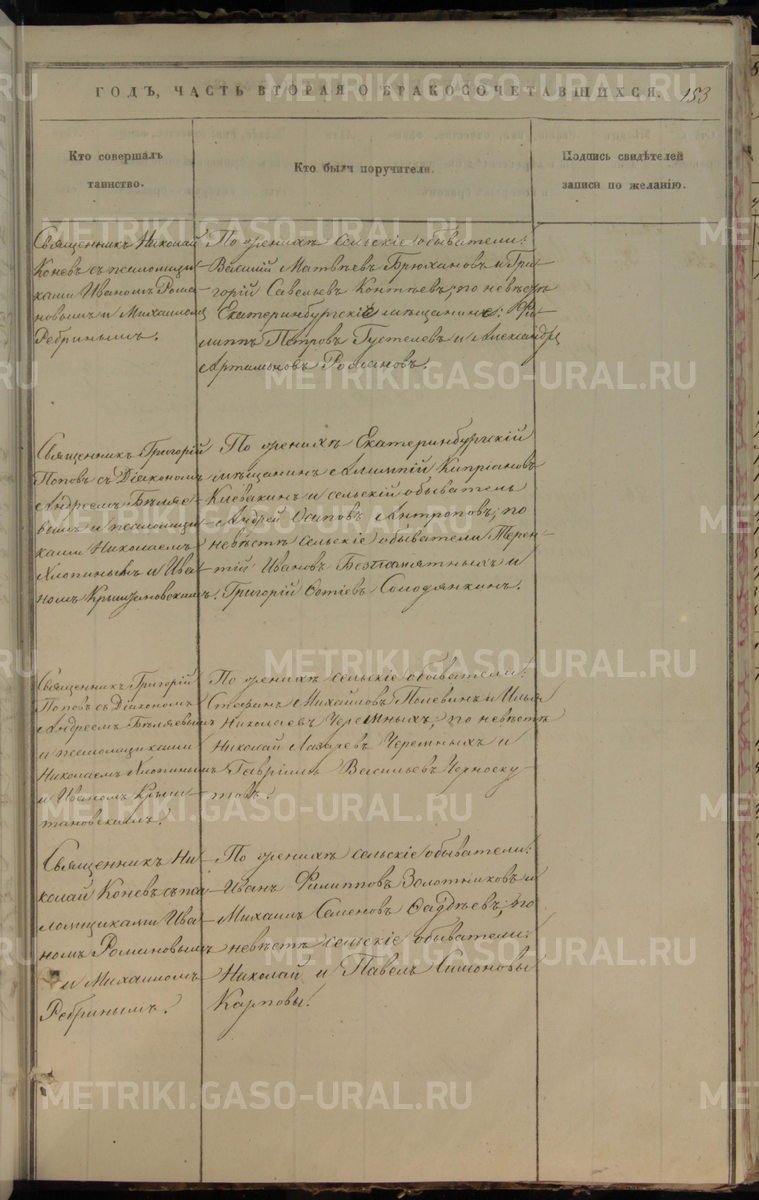 ГОДЪ, ЧАСТЬ ВТОРАЯ О БРАКОСОЧЕТАВШИХСЯ. 153
Кто совершалъ
таинство.
Кто были поручители.
Подпись свидѣтелей
записи по желанію.
Священникъ Николай
Коневъ съ псаломщи-
ками Иваномъ Рома-
новымъ и Михаиломъ
Ребринымъ.
По женихѣ сельскіе обыватели:
Василій Матвѣевъ Брюхановъ и Гри-
горій Савельевъ по невѣстѣ
Екатеринбургскіе мѣщанине: Фи-
липпъ Петровъ и Александръ
Артамоновъ Романовъ.
Священникъ Григорій
Поповъ съ Діакономъ
Андреемъ Бѣляе-
вымъ и псаломщи-
ками Николаемъ
Хлопинымъ и Ива-
номъ Крыжановскимъ.
По женихѣ Екатеринбургскій
мѣщанинъ Алимпій Кипріановъ
Клевакинъ и сельскій обыватель
Андрей Осиповъ Антроповъ; по
невѣстѣ сельскіе обыватели Терен-
тій Ивановъ Безпамятныхъ и
Григорій Солодянкинъ.
Священникъ Григорій
Поповъ съ Діакономъ
Андреемъ Бѣляевымъ
и псаломщиками
Николаемъ Хлопинымъ
и Иваномъ Крыжи-
тановскимъ.
По женихѣ сельскіе обыватели:
Стефанъ Михайловъ Полевинъ и Илья
Николаевъ Черемныхъ, по невѣстѣ
Николай Лазаревъ Черемныхъ и
Гавріилъ Васильевъ Черноску-
товъ.
Священникъ Ни-
колай Коневъ съ пса-
ломщиками Ива-
номъ Романовымъ
и Михаиломъ
Ребринымъ.
По женихѣ сельскіе обыватели:
Иванъ Филипповъ Золотниковъ и
Михаилъ Семеновъ Фаддѣевъ; по
невѣстѣ сельскіе обыватели:
Николай и Павелъ Симоновы
Карповы.
METRIKI.GASO-URAL.RU